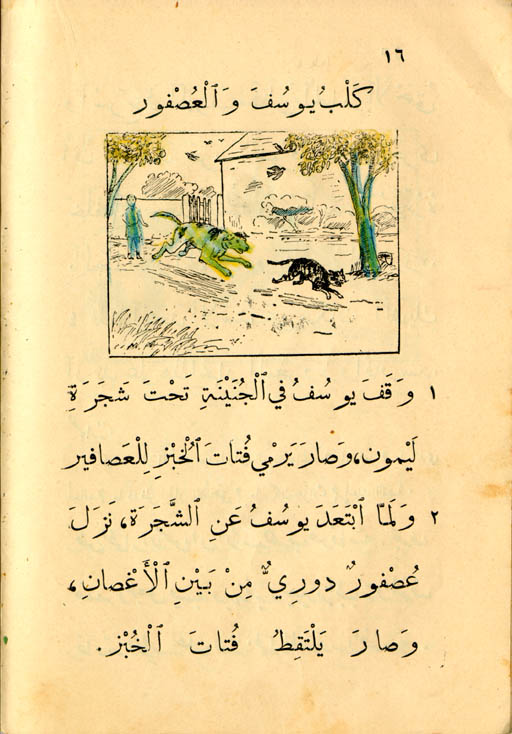 ١٦
كَلْبُ يوسُفَ وَٱلْعُصْفور
١ وَقَفَ يوسُفُ في ٱلْجُنَيْنَةِ تَحْتَ شَجَرَةِ
لَيْمون، وَصارَ يَرْمي فُتاتَ ٱلْخُبْزِ لِلْعَصافير
٢ وَلَمّا ٱبْتَعَدَ يوسُفُ عَنِ ٱلشَّجَرَة، نَزَلَ
عُصْفورٌ دوريٌّ مِنْ بَيْنِ ٱلْأَغْصانِ،
وَصارَ يَلْتَقِطُ فُتاتَ ٱلْخُبْز.